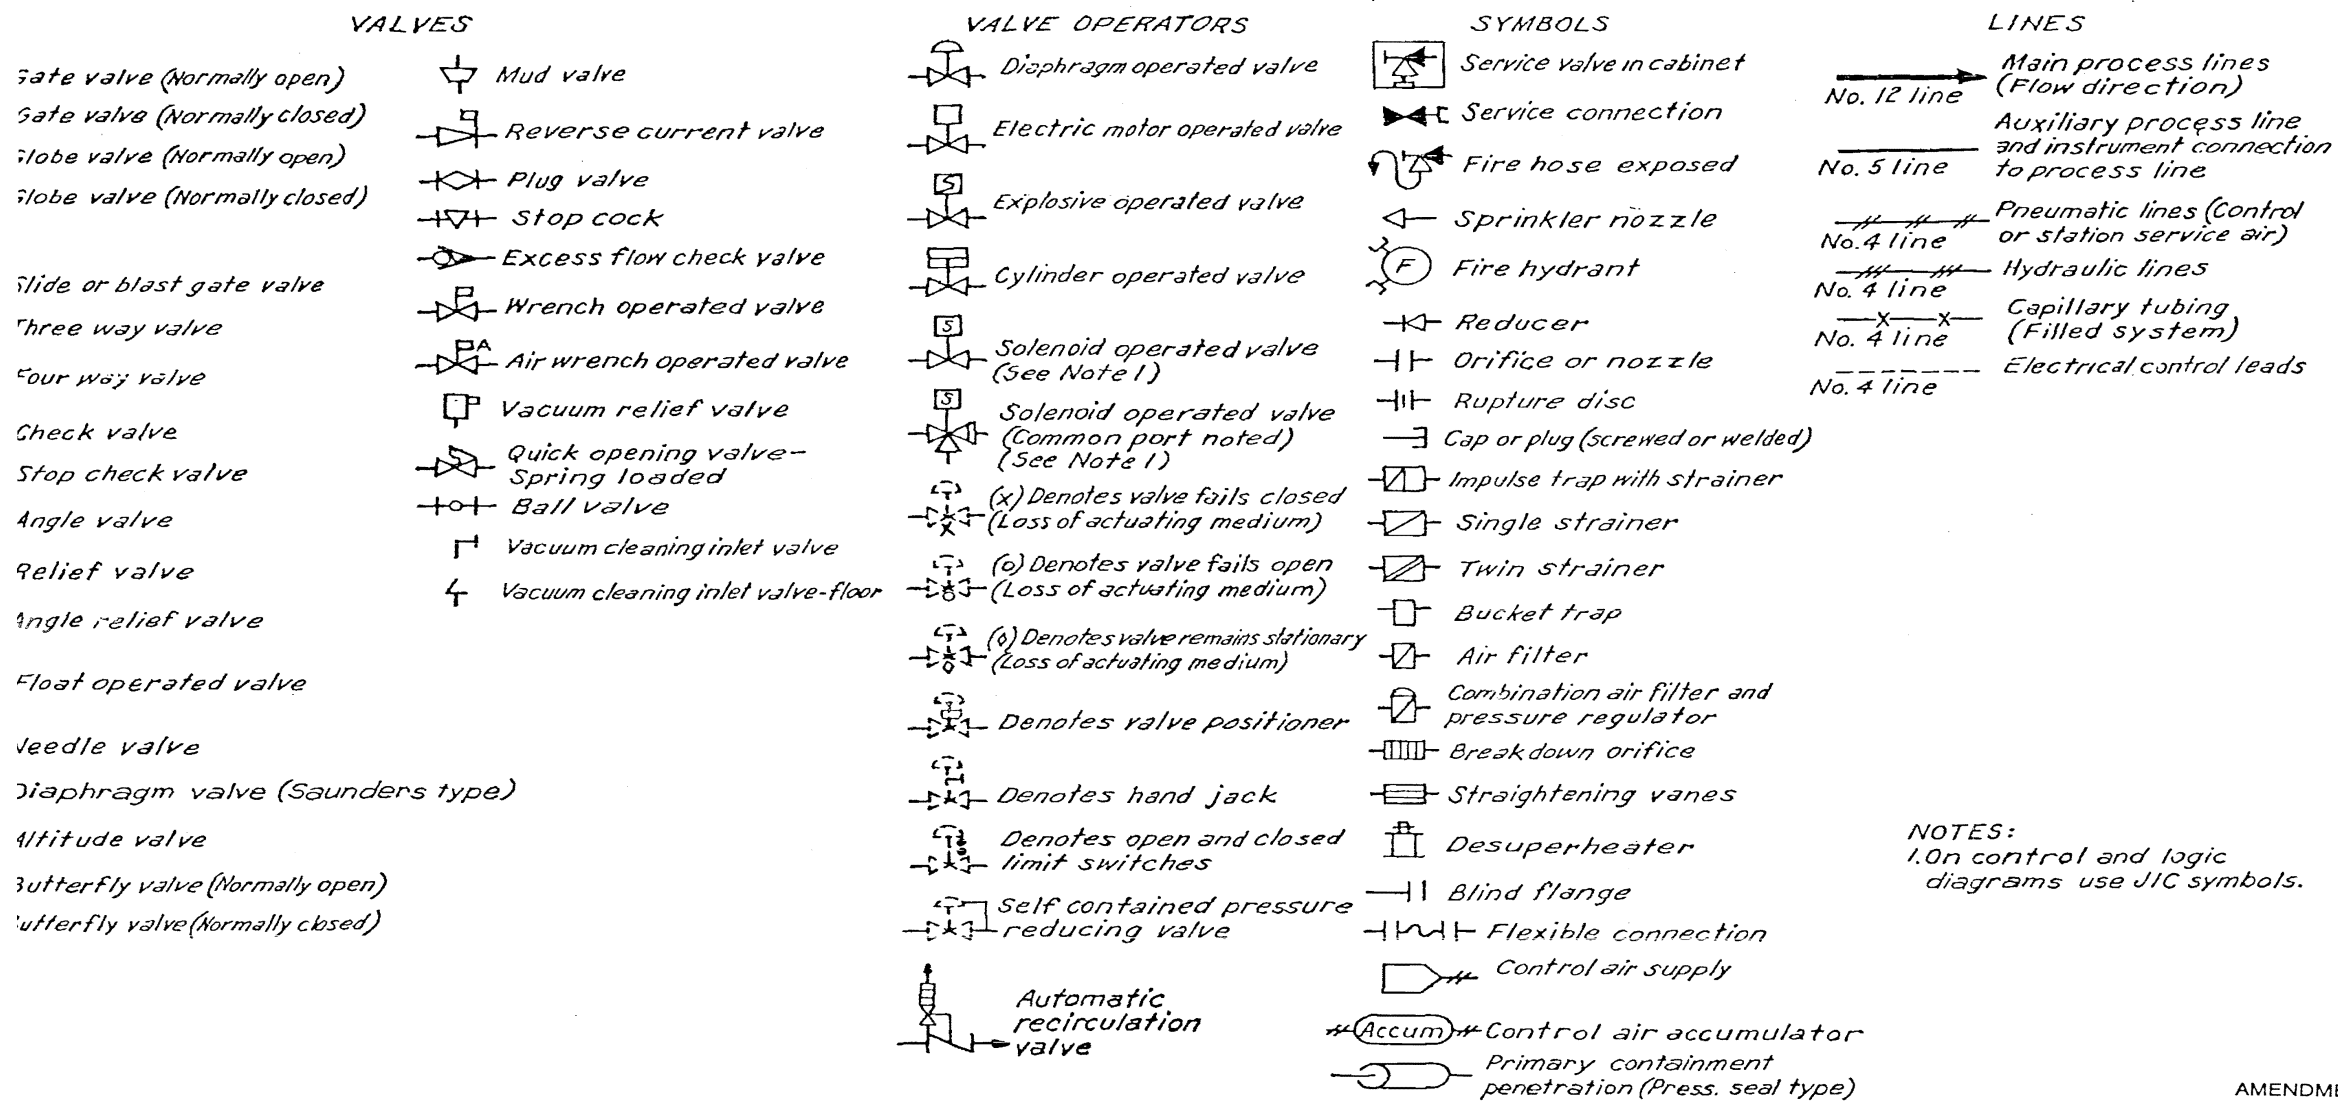 VALVES
Gate valve (Normally open)
Gate valve (Normally closed)
Globe valve (Normally open)
Globe valve (Normally closed)
Slide or blast gate valve
Three way valve
Four way valve
Check valve
Stop check valve
Angle valve
Relief valve
Angle relief valve
Float operated valve
Needle valve
Diaphragm valve (Saunders type)
Altitude valve
Butterfly valve (Normally open)
Butterfly valve (Normally closed)
Mud valve
Reverse current valve
Plug valve
Stop cock
Excess flow check valve
Wrench operated valve
A
Air wrench operated valve
Vacuum relief valve
Quick opening valve-
Spring loaded
Ball valve
Vacuum cleaning inlet valve
Vacuum cleaning inlet valve-floor
VALVE OPERATORS
Diaphragm operated valve
Electric motor operated valve
S
Explosive operated valve
Cylinder operated valve
S
Solenoid operated valve
(See Note 1)
S
Solenoid operated valve
(Common port noted)
(See Note 1)
(x) Denotes valve fails closed
(Loss of actuating medium)
(o) Denotes valve fails open
(Loss of actuating medium)
(◊) Denotes valve remains stationary
(Loss of actuating medium)
Denotes valve positioner
Denotes hand jack
Denotes open and closed
limit switches
Self contained pressure
reducing valve
Automatic
recirculation
valve
SYMBOLS
Service valve in cabinet
Service connection
Fire hose exposed
Sprinkler nozzle
F
Fire hydrant
Reducer
Orifice or nozzle
Rupture disc
Cap or plug (screwed or welded)
Impulse trap with strainer
Single strainer
Twin strainer
Bucket trap
Air filter
Combination air filter and
pressure regulator
Breakdown orifice
Straightening vanes
Desuperheater
Blind flange
Flexible connection
Control air supply
Accum
Control air accumulator
Primary containment
penetration (Press. seal type)
LINES
No. 12 line
Main process lines
(Flow direction)
No. 5 line
Auxiliary process line
and instrument connection
to process line
No. 4 line
Pneumatic lines (Control
or station service air)
No. 4 line
Hydraulic lines
No. 4 line
Capillary tubing
(Filled system)
No. 4 line
Electrical control leads
NOTES:
1. On control and logic
diagrams use JIC symbols.
AMENDME